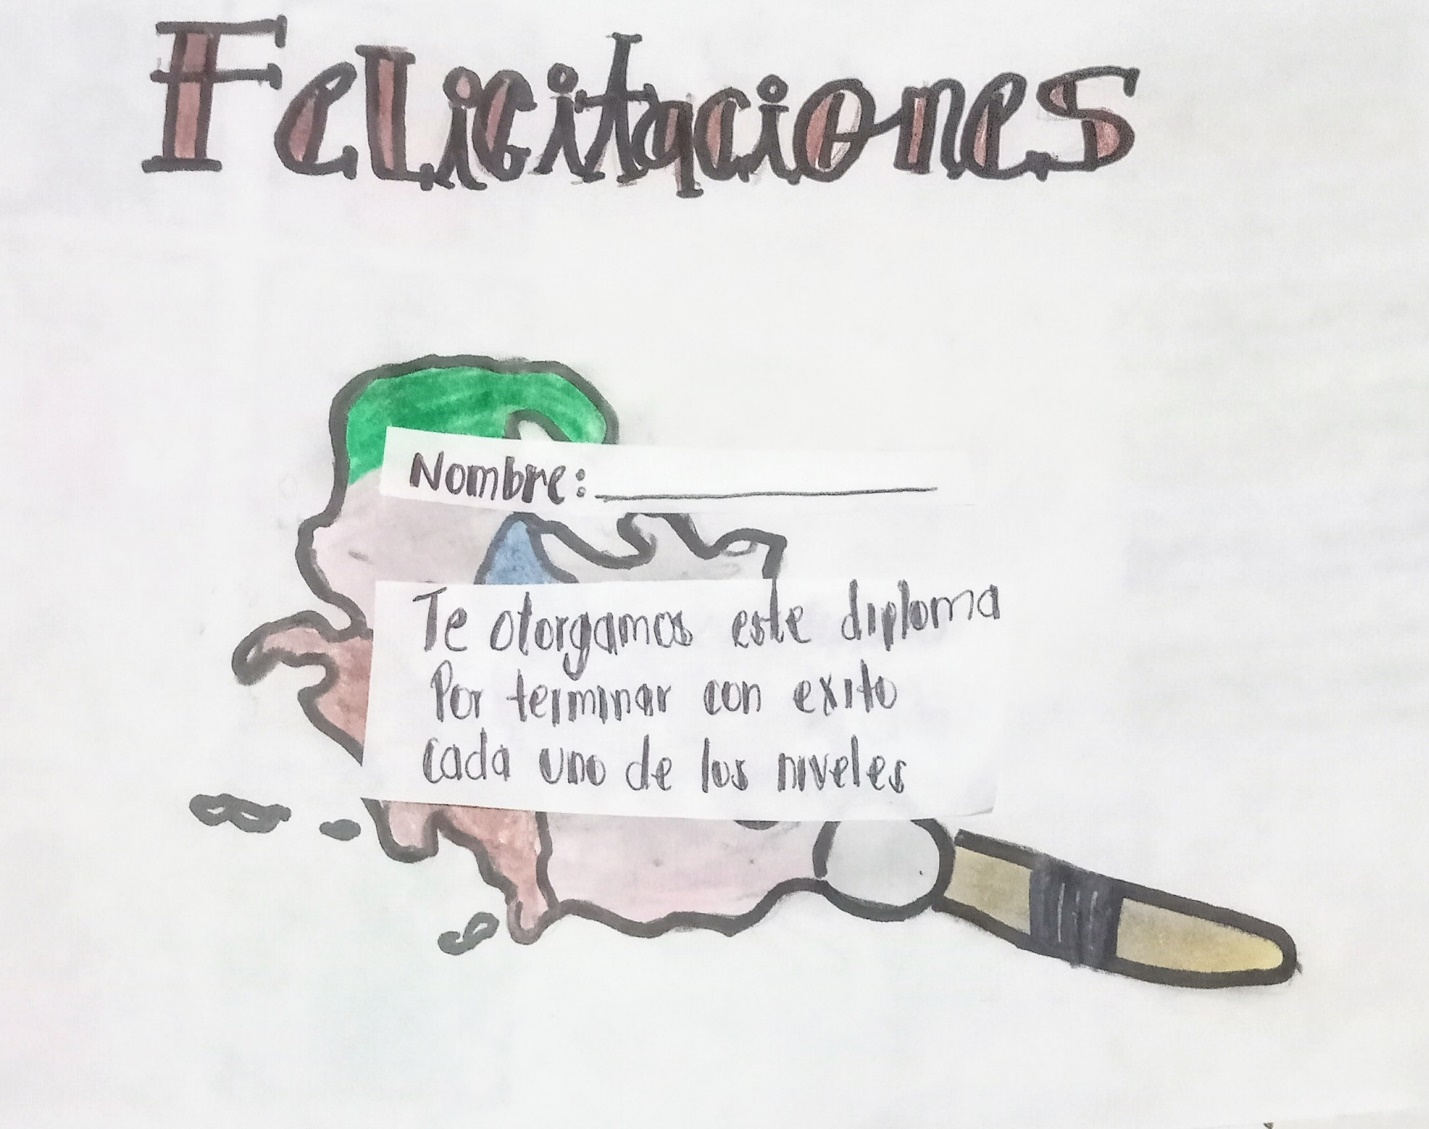 Felicitaciones
Nombre: ______________
Te otorgamos este diploma
Por terminar con exito
cada uno de los niveles